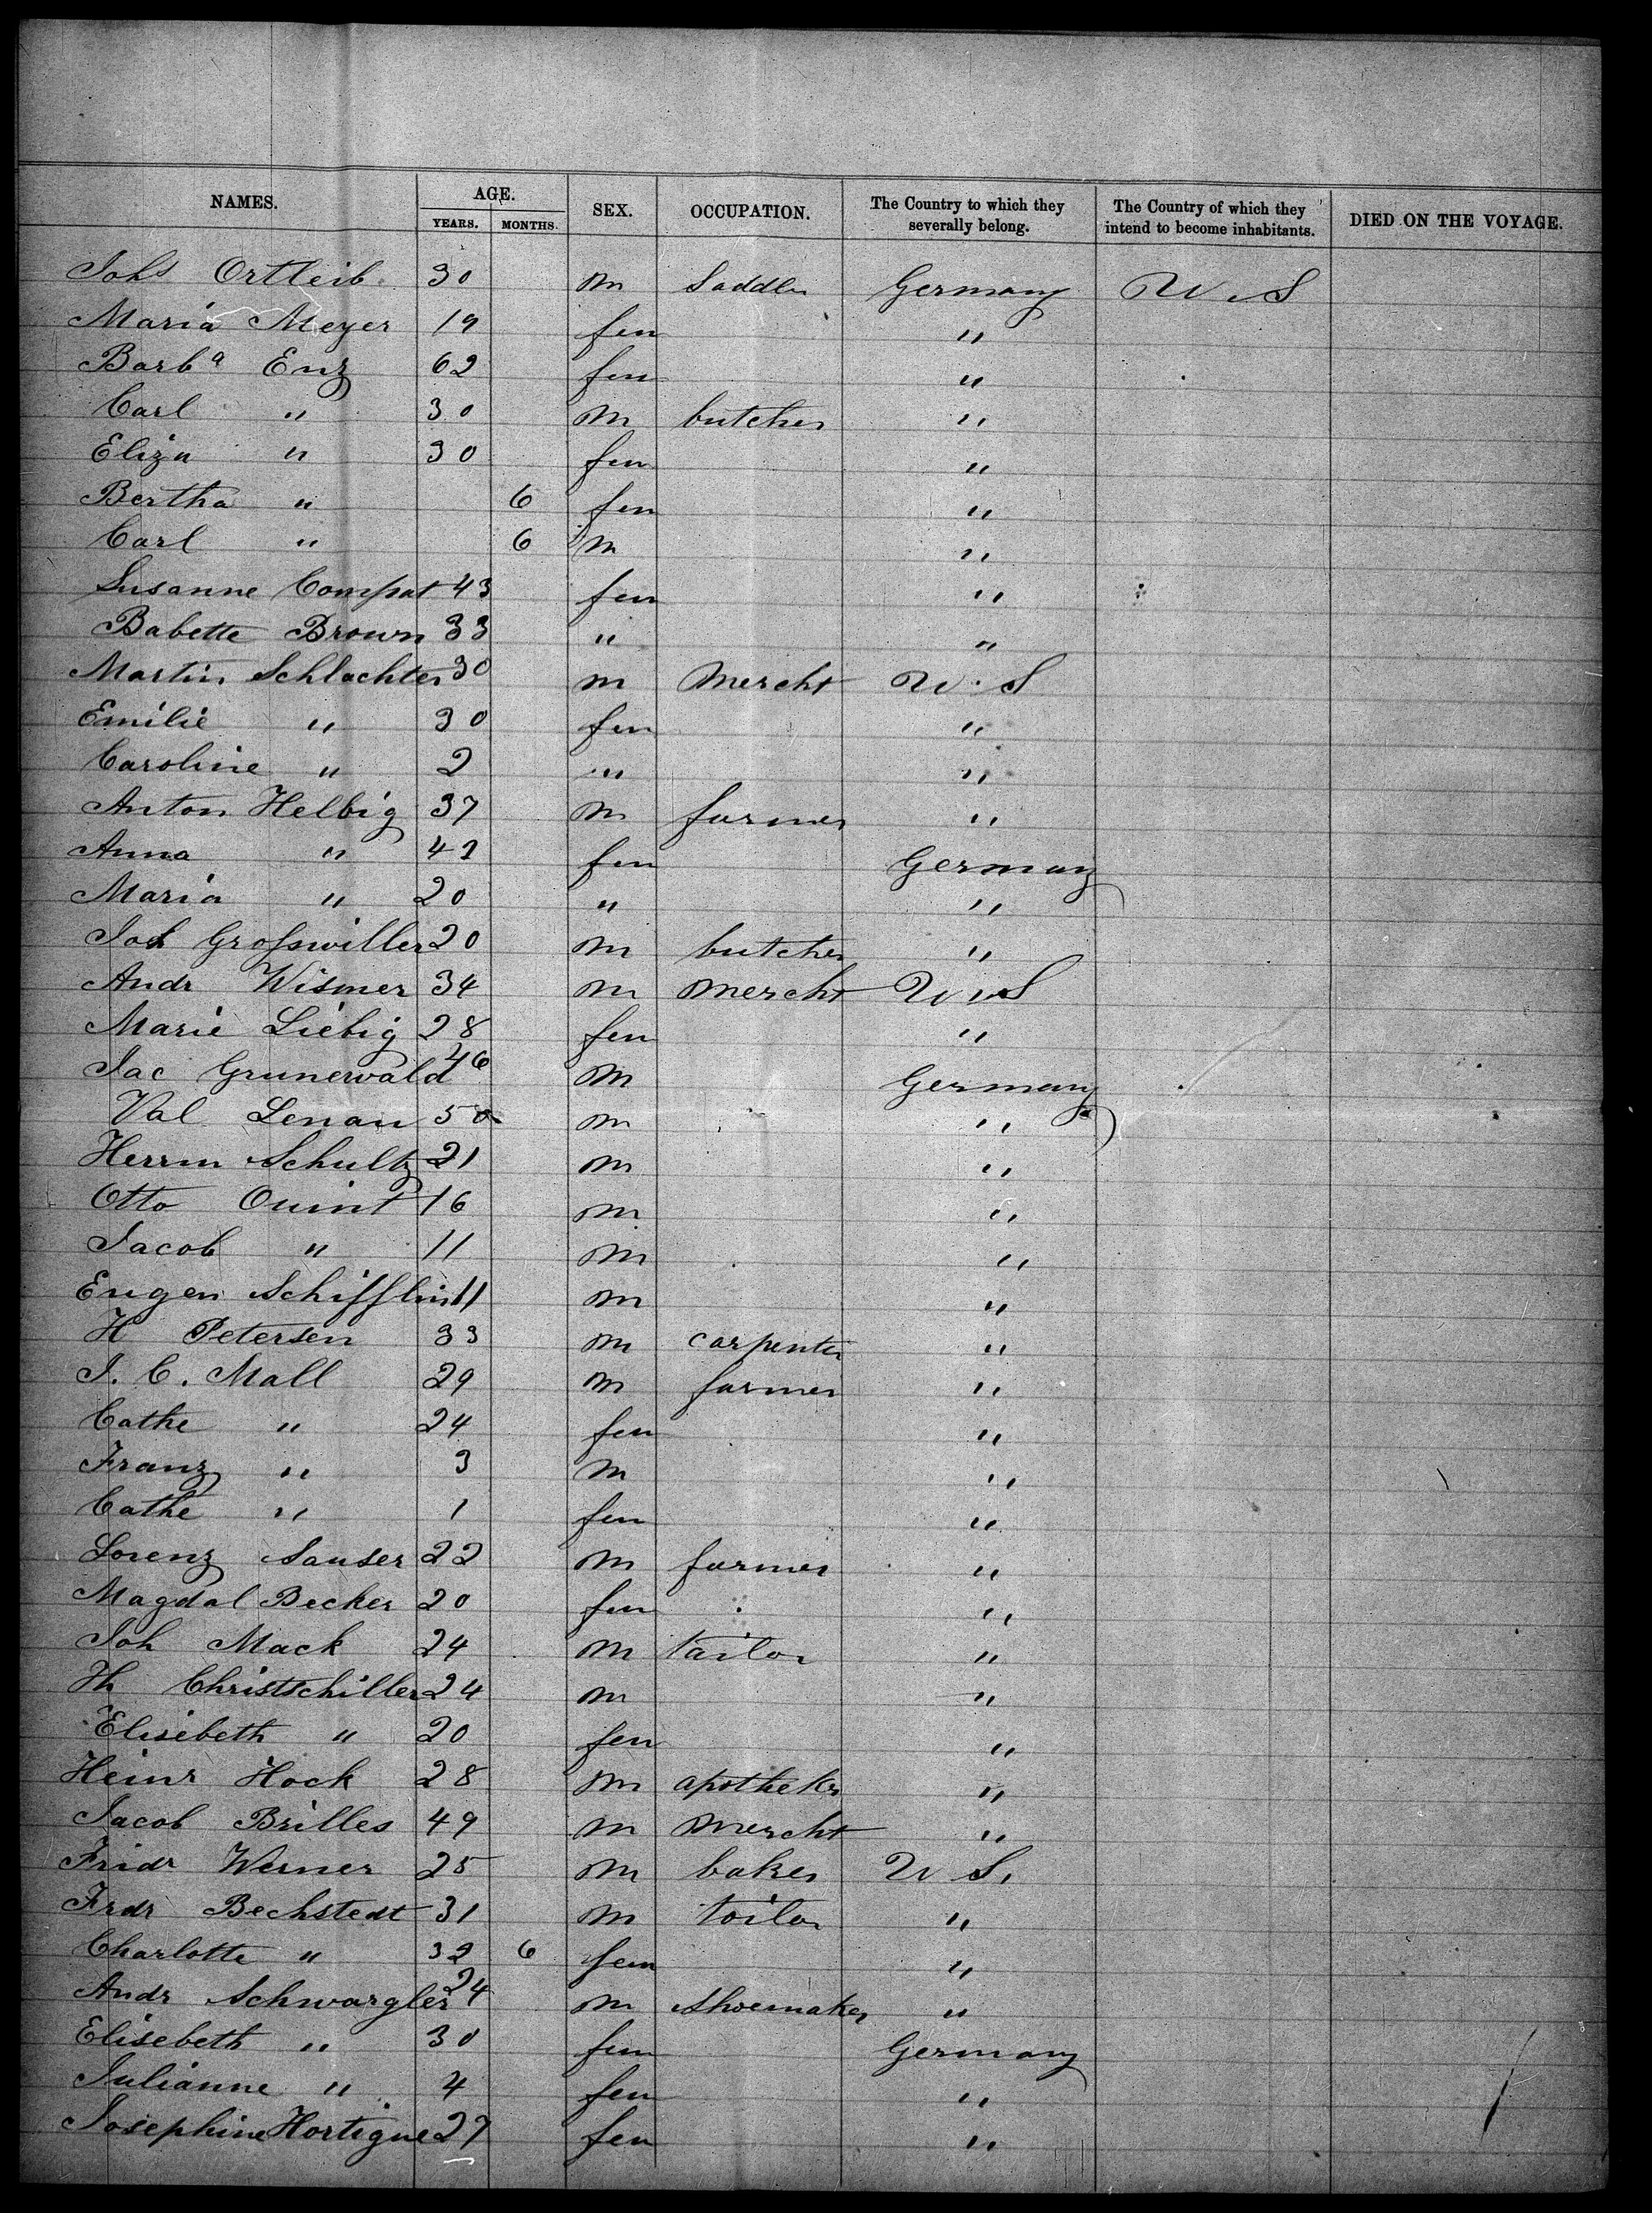 NAMES. AGE. SEX. OCCUPATION. The Country to which they severally belong. The Country of which they intend to become inhabitants. DIED ON THE VOYAGE.
YEARS. MONTHS.
Johs Ortleib 30 m Saddler Germany U.S
Maria Meyer 19 fem "
Barba Enz 62 fem "
Carl " 30 m butcher "
Eliza " 30 fem "
Bertha " 6 fem "
Carl " 6 m "
Susanne Compat 43 fem "
Babette Brown 33 " "
Martin Schlachter 30 m Mercht U.S
Emilie " 30 fem "
Caroline " 2 " "
Anton Helbig 37 m farmer "
Anna " 42 fem Germany
Maria " 20 " "
Joh Grosswiller 20 m butcher "
Andr Wismer 34 m Mercht U.S
Marie Liebig 28 fem "
Jac Grunerwald 46 m Germany
Val Lenau 50 m "
Herrm Schultz 21 m "
Otto Quint 16 m "
Jacob " 11 m "
Eugen Schifflin 11 m "
H Petersen 33 m carpenter "
J. C. Mall 29 m farmer "
Cathe " 24 fem "
Franz " 3 m "
Cathe " 1 fem "
Lorenz Sauser 22 m farmer "
Magdal Becker 20 fem "
Joh Mack 24 m tailor "
H Christschiller 24 m "
Elisebeth " 20 fem "
Heinr Hock 28 m apotheker "
Jacob Brilles 49 m Mercht "
Fridr Werner 25 m baker U S.
Frdr Bechstedt 31 m tailor "
Charlotte " 32 6 fem "
Andr Schwargler 24 m Shoemaker "
Elisebeth " 30 fem Germany
Julianne " 4 fem "
Josephine Hortigue 27 fem "